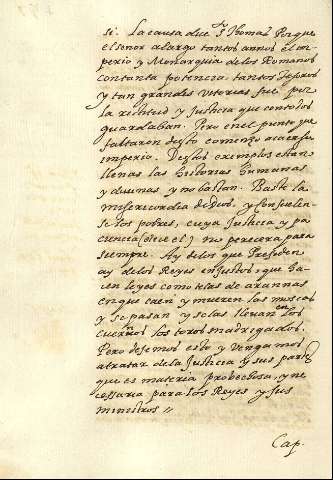 si. La causa dice S.to Thomas Porque
el señor alargo tantos annos el im-
perio y Monarquia de los Romanos
con tanta potencia tantos Tesoros
y tan grandes vitorias fue por
la rectitud y Justicia que con todos
guardaban. Pero en el punto que
faltaron desto començo acaer su
imperio. Destos exemplos estan
llenas las historias humanas
y divinas y no bastan. Baste la
misericordia de Dios. y consuelen
se los pobres, cuya Justicia y pa
ciencia (dice el) no perecera para
siempre. Ay de los que Presiden
ay de los Reyes injustos que ha-
cen leyes como telas de arannas
en que caen y mueren las moscas
y se pasan y se las llevan en los
cuernos los toros madrigados.
Pero dejemos esto y vengamos
a tratar de la Justicia y sus partes
que es materia probechosa, y ne
cessaria para los Reyes y sus
ministros //
Cap.